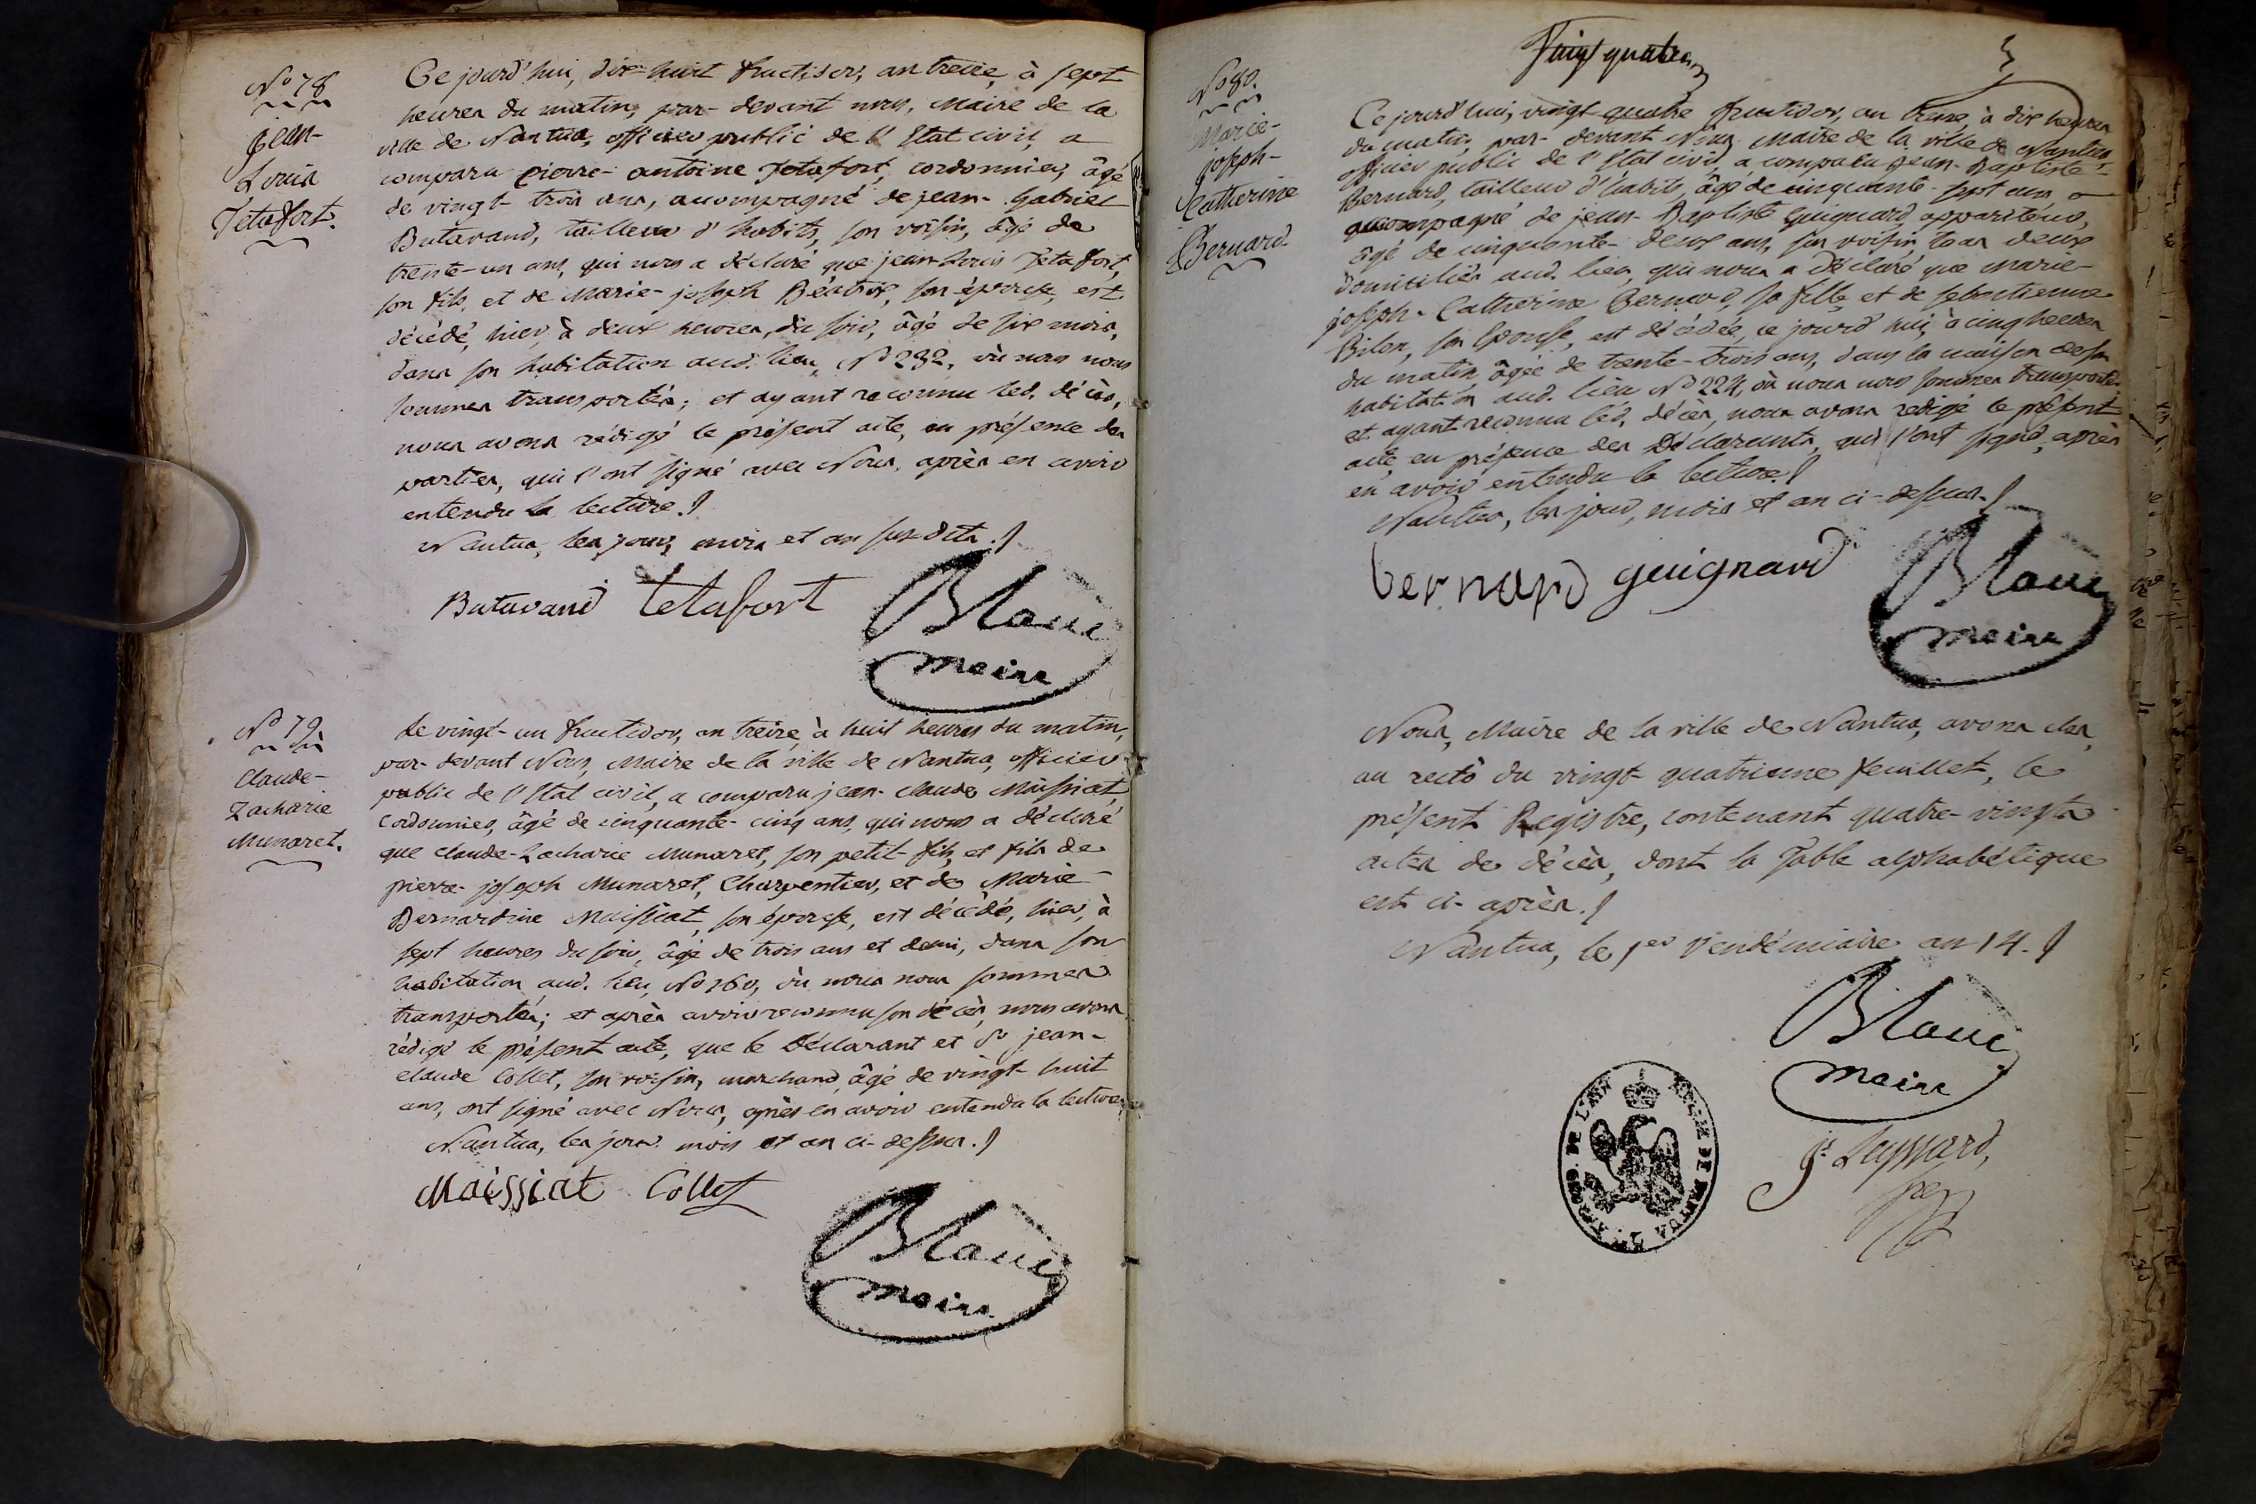 N° 78
Jean-
Louis
Tetafort.
Ce jourd'hui, dix-huit fructidor, an treize, à sept
heures du matin, par-devant nous, Maire de la
ville de Nantua, officier public de l'Etat civil, a
comparu pierre-antoine Tetafort, cordonnier, âgé
de vingt-trois ans, accompagné de jean-Gabriel
Butavand, tailleur d'habits, son voisin, âgé de
trente-un ans, qui nous a déclaré que jean-Louis Tétafort,
son fils, et de Marie-joseph Béatrix, son épouse, est
décédé, hier, à deux heures, du soir, âgé de six mois,
dans son habitation aud. lieu, N° 232, où nous nous
sommes transportés; et ayant reconnu led. décès,
nous avons rédigé le présent acte, en présence des
parties, qui l'ont signé avec Nous, après en avoir
entendu la lecture./
Nantua, les jour, mois et an susdits./
Butavand Tetafort
Blanc
maire
N° 79
Claude-
Zacharie
Munaret.
Le vingt-un fructidor, an treize, à huit heures du matin,
par-devant Nous, Maire de la ville de Nantua, officier
public de l'Etat civil, a comparu jean-claude Maissiat,
cordonnier, âgé de cinquante-cinq ans, qui nous a déclaré
que claude-Zacharie Munaret, son petit-fils, et fils de
pierre-joseph Munaret, Charpentier, et de Marie-
Bernardine Maissiat, son épouse, est décédé, hier, à
sept heures du soir, âgé de trois ans et demi, dans son
habitation aud. lieu, N° 160, où nous nous sommes
transportés; et après avoir reconnu son décès, nous avons
rédigé le présent acte, que le Déclarant et Sr jean-
claude Collet, son voisin, marchand, âgé de vingt-huit
ans, ont signé avec Nous, après en avoir entendu la lecture.
Nantua, les jour mois et an ci-dessus./
Maissiat Collet
Blanc
maire
Vingt quatre
N° 80.
Marie-
joseph-
Catherine
Bernard.
Ce jourd'hui, vingt-quatre fructidor, an treize, à dix heures
du matin, par-devant Nous Maire de la ville de Nantua,
officier public de l'Etat civil, a comparu jean-Baptiste-
Bernard, tailleur d'habits, âgé de cinquante-sept ans
accompagné de jean-Baptiste Guignard, appariteur,
âgé de cinquante-deux ans, son voisin, tous deux
domiciliés aud. lieu, qui nous a déclaré que Marie-
joseph-Catherine Bernard, sa fille et de sebastienne
Bilon, son Epouse, est décédée, ce jourd'hui, à cinq heures
du matin, âgée de trente-trois ans, dans la maison de son
habitation aud. lieu N° 224, où nous nous sommes transportés
et ayant reconnu led. décès, nous avons rédigé le présent
acte, en présence des Déclarants, qui l'ont signé, après
en avoir entendu la lecture./
Nantua, les jour, mois et an ci-dessus./
bernard guignard
Blanc
maire
Nous, Maire de la ville de Nantua, avons clos,
au recto du vingt-quatrieme feuillet, le
présent Registre, contenant quatre-vingts
actes de décès, dont la Table alphabétique
est ci-après./
Nantua, le 1er Vendémiaire an 14./
Blanc
maire